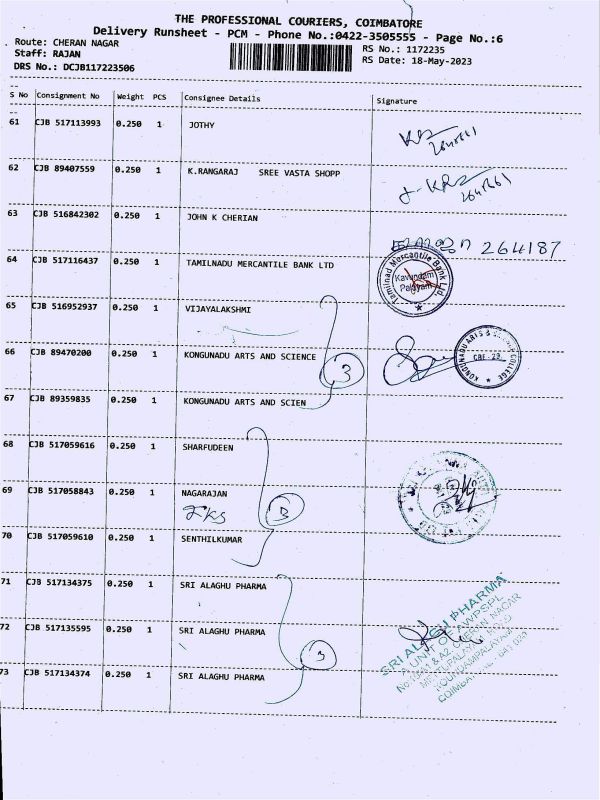 THE PROFESSIONAL COURIERS, COIMBATORE
Delivery Runsheet - PCM - Phone No.:0422-3505555 - Page No.:6
Route: CHERAN NAGAR
Staff: RAJAN
DRS No.: DCJB117223506
RS No.: 1172235
RS Date: 18-May-2023
S No Consignment No Weight PCS Consignee Details Signature
61 CJB 517113993 0.250 1 JOTHY
62 CJB 89407559 0.250 1 K.RANGARAJ SREE VASTA SHOPP
63 CJB 516842302 0.250 1 JOHN K CHERIAN
264187
64 CJB 517116437 0.250 1 TAMILNADU MERCANTILE BANK LTD
Tamilnad Mercantile Bank Ltd.
Kavundam
Palayam
65 CJB 516952937 0.250 1 VIJAYALAKSHMI
66 CJB 89470200 0.250 1 KONGUNADU ARTS AND SCIENCE
3
KONGUNADU ARTS & SCIENCE COLLEGE
CBE - 29.
67 CJB 89359835 0.250 1 KONGUNADU ARTS AND SCIEN
68 CJB 517059616 0.250 1 SHARFUDEEN
69 CJB 517058843 0.250 1 NAGARAJAN
70 CJB 517059610 0.250 1 SENTHILKUMAR
71 CJB 517134375 0.250 1 SRI ALAGHU PHARMA
72 CJB 517135595 0.250 1 SRI ALAGHU PHARMA
3
73 CJB 517134374 0.250 1 SRI ALAGHU PHARMA
SRI ALAGU PHARMA
A UNIT OF AWPSPL
CHERAN NAGAR